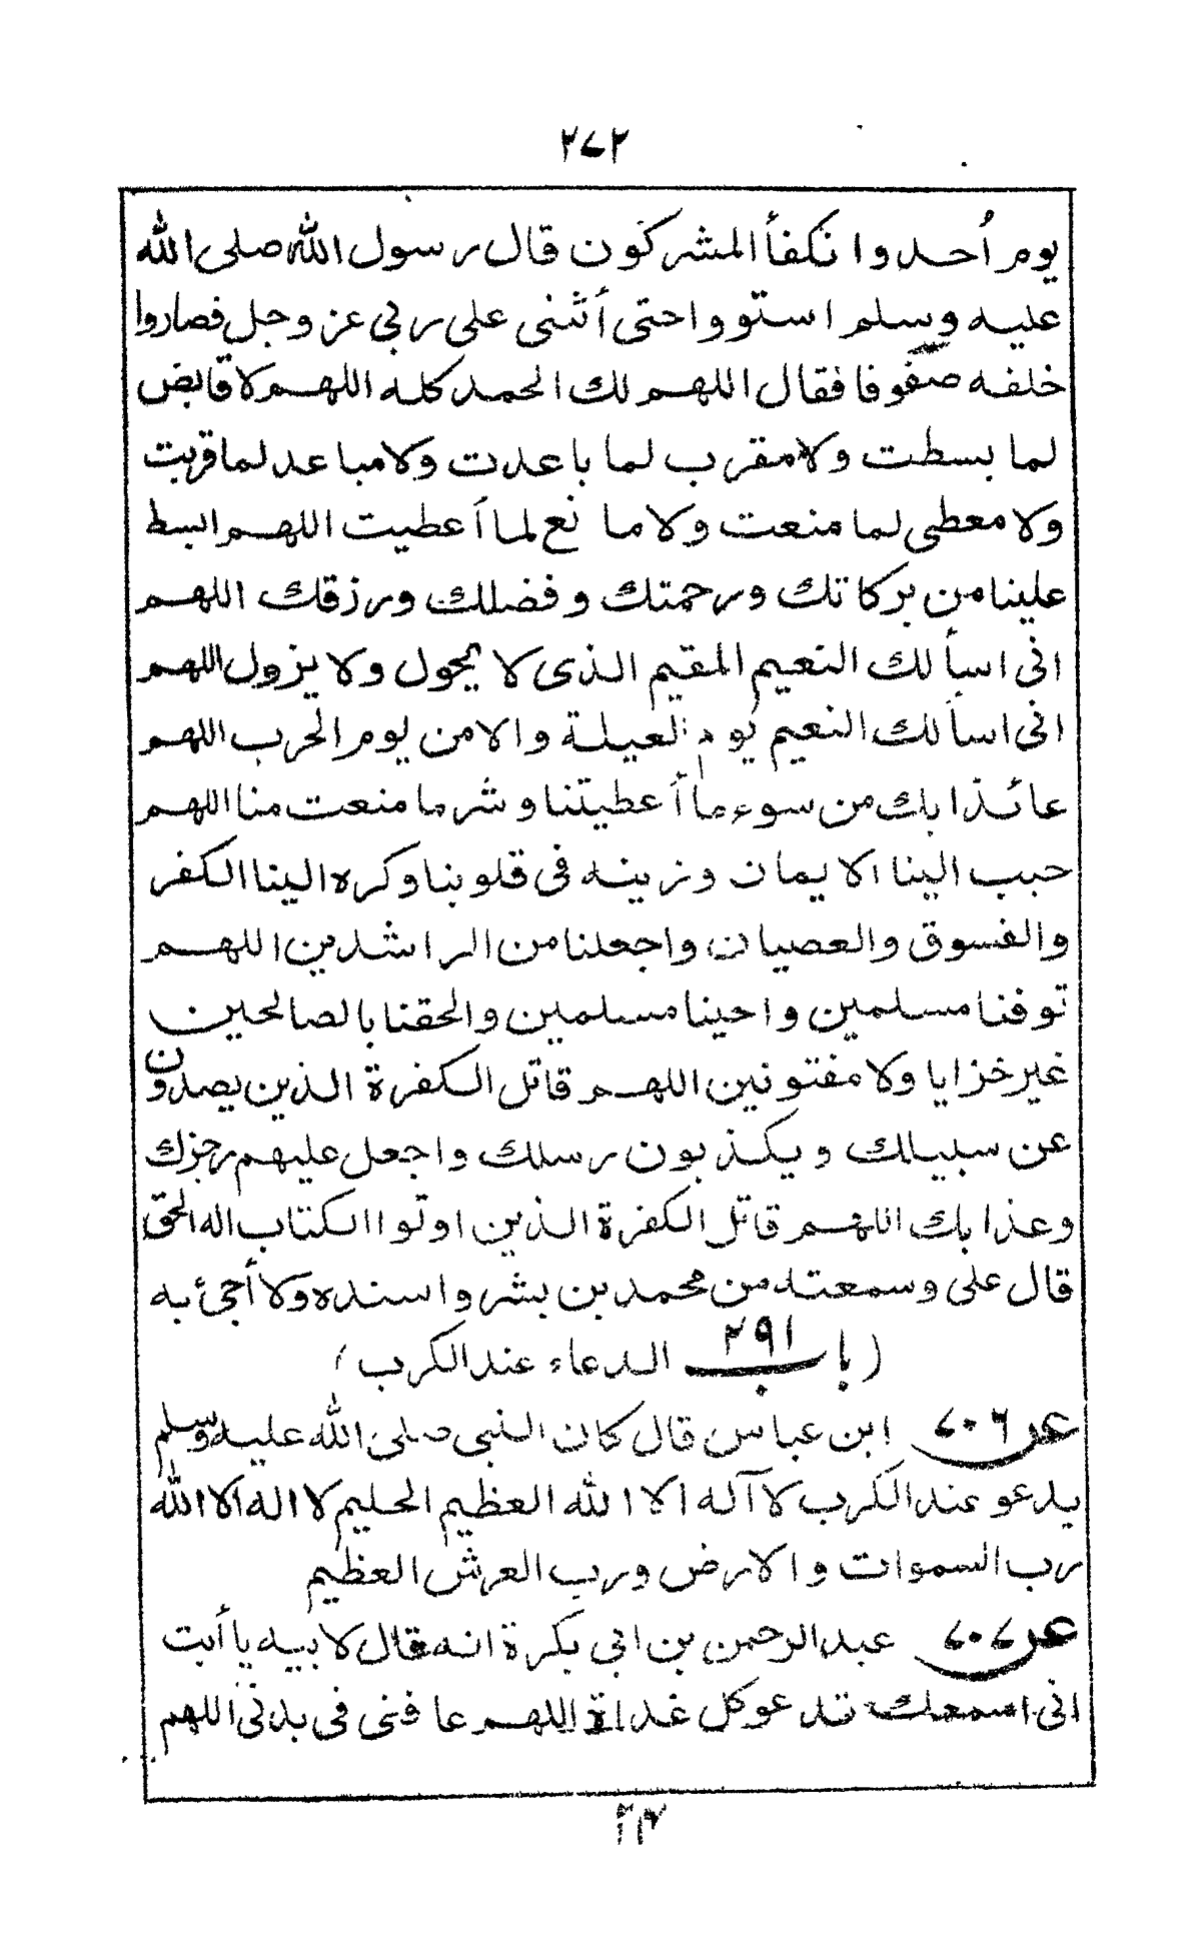 ٢٧٢
يوم أُحد وانكفأ المشركون قال رسول الله صلى الله
عليه وسلم استووا حتى أثنى على ربى عز وجل فصاروا
خلفه صفوفا فقال اللهم لك الحمد كله اللهم لا قابض
لما بسطت ولا مقرب لما باعدت ولا مباعد لما قربت
ولا معطى لما منعت ولا مانع لما أعطيت اللهم ابسط
علينا من بركاتك ورحمتك وفضلك ورزقك اللهم
انى اسألك النعيم المقيم الذى لا يحول ولا يزول اللهم
انى اسألك النعيم يوم العيلة والامن يوم الحرب اللهم
عائذا بك من سوء ما أعطيتنا وشر ما منعت منا اللهم
حبب الينا الايمان وزينه فى قلوبنا وكره الينا الكفر
والفسوق والعصيان واجعلنا من الراشدين اللهم
توفنا مسلمين واحينا مسلمين والحقنا بالصالحين
غير خزايا ولا مفتونين اللهم قاتل الكفرة الذين يصدون
عن سبيلك ويكذبون رسلك واجعل عليهم رجزك
وعذابك اللهم قاتل الكفرة الذين اوتوا الكتاب اله الحق
قال على وسمعته من محمد بن بشر واسنده ولا أجئ به
(باب ٢٩١ الدعاء عند الكرب)
عن ٧٠٦ ابن عباس قال كان النبى صلى الله عليه وسلم
يدعو عند الكرب لا آله الا الله العظيم الحليم لا اله الا الله
رب السموات والارض ورب العرش العظيم
عن ٧٠٧ عبد الرحمن بن ابى بكرة انه قال لابيه يا أبت
انى اسمعك تدعو كل غداة اللهم عافنى فى بدنى اللهم